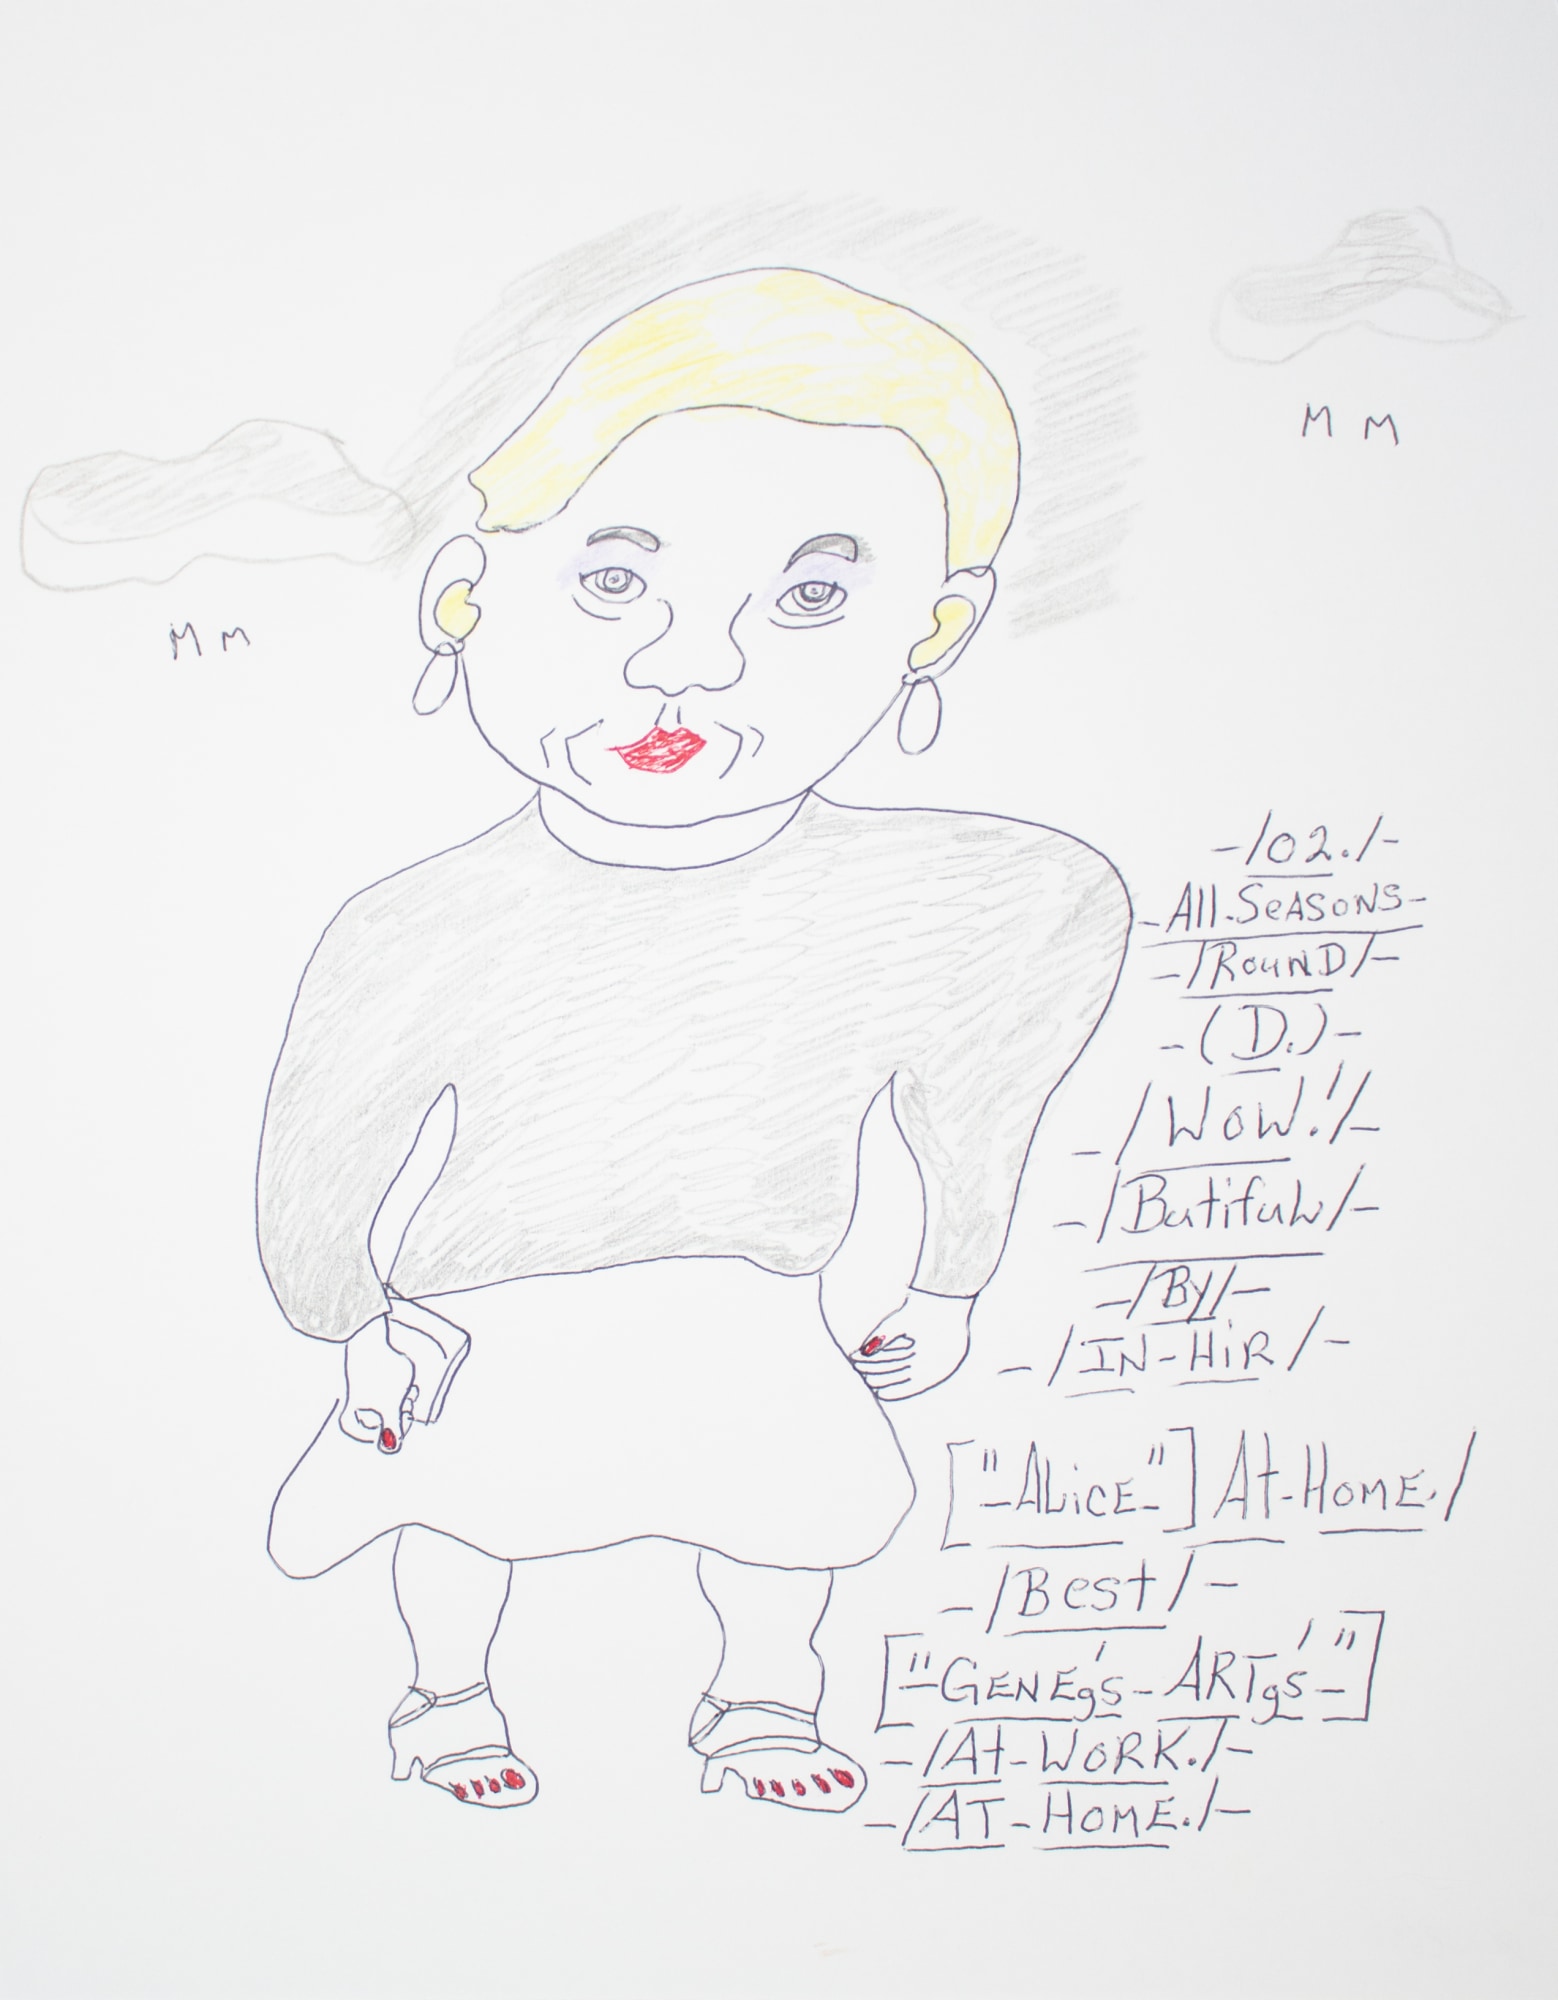 M M
M M
-/02./-
-All-SeASoNS-
-/RounD/-
-(D.)-
-/WoW.!/-
-/Butiful/-
-/By/-
-/IN-HiR/-
["-ALiCE-"] At-HoME./
-/Best/-
["-GENEg's-ARTgs'-"]
-/At-WoRK./-
-/AT-HoME./-